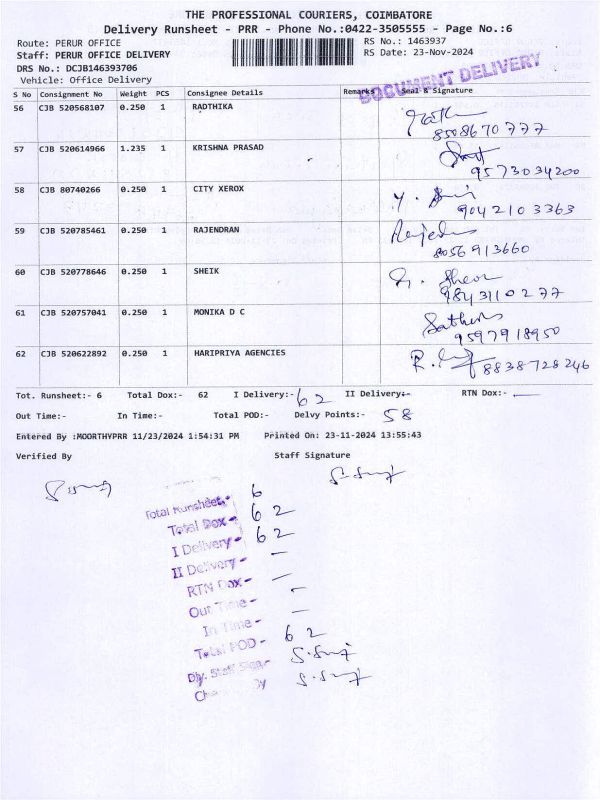 THE PROFESSIONAL COURIERS, COIMBATORE
Delivery Runsheet - PRR - Phone No.:0422-3505555 - Page No.:6
Route: PERUR OFFICE RS No.: 1463937
Staff: PERUR OFFICE DELIVERY RS Date: 23-Nov-2024
DRS No.: DCJB146393706
Vehicle: Office Delivery
DOCUMENT DELIVERY
S No Consignment No Weight PCS Consignee Details Remarks Seal & Signature
56 CJB 520568107 0.250 1 RADTHIKA
8508670777
57 CJB 520614966 1.235 1 KRISHNA PRASAD
9573034200
58 CJB 80740266 0.250 1 CITY XEROX
9042103363
59 CJB 520785461 0.250 1 RAJENDRAN
8056913660
60 CJB 520778646 0.250 1 SHEIK
9843110277
61 CJB 520757041 0.250 1 MONIKA D C
9597918950
62 CJB 520622892 0.250 1 HARIPRIYA AGENCIES 8838728246
Tot. Runsheet:- 6 Total Dox:- 62 I Delivery:- 62 II Delivery:- RTN Dox:- —
Out Time:- In Time:- Total POD:- Delvy Points:- 58
Entered By :MOORTHYPRR 11/23/2024 1:54:31 PM Printed On: 23-11-2024 13:55:43
Verified By Staff Signature
Total Runsheet- 6
Total Dox- 62
I Delivery- 62
II Delivery- —
RTN Dox- —
Out Time- –
In Time- –
Total POD- 62
Dly. Staff Sign-
By